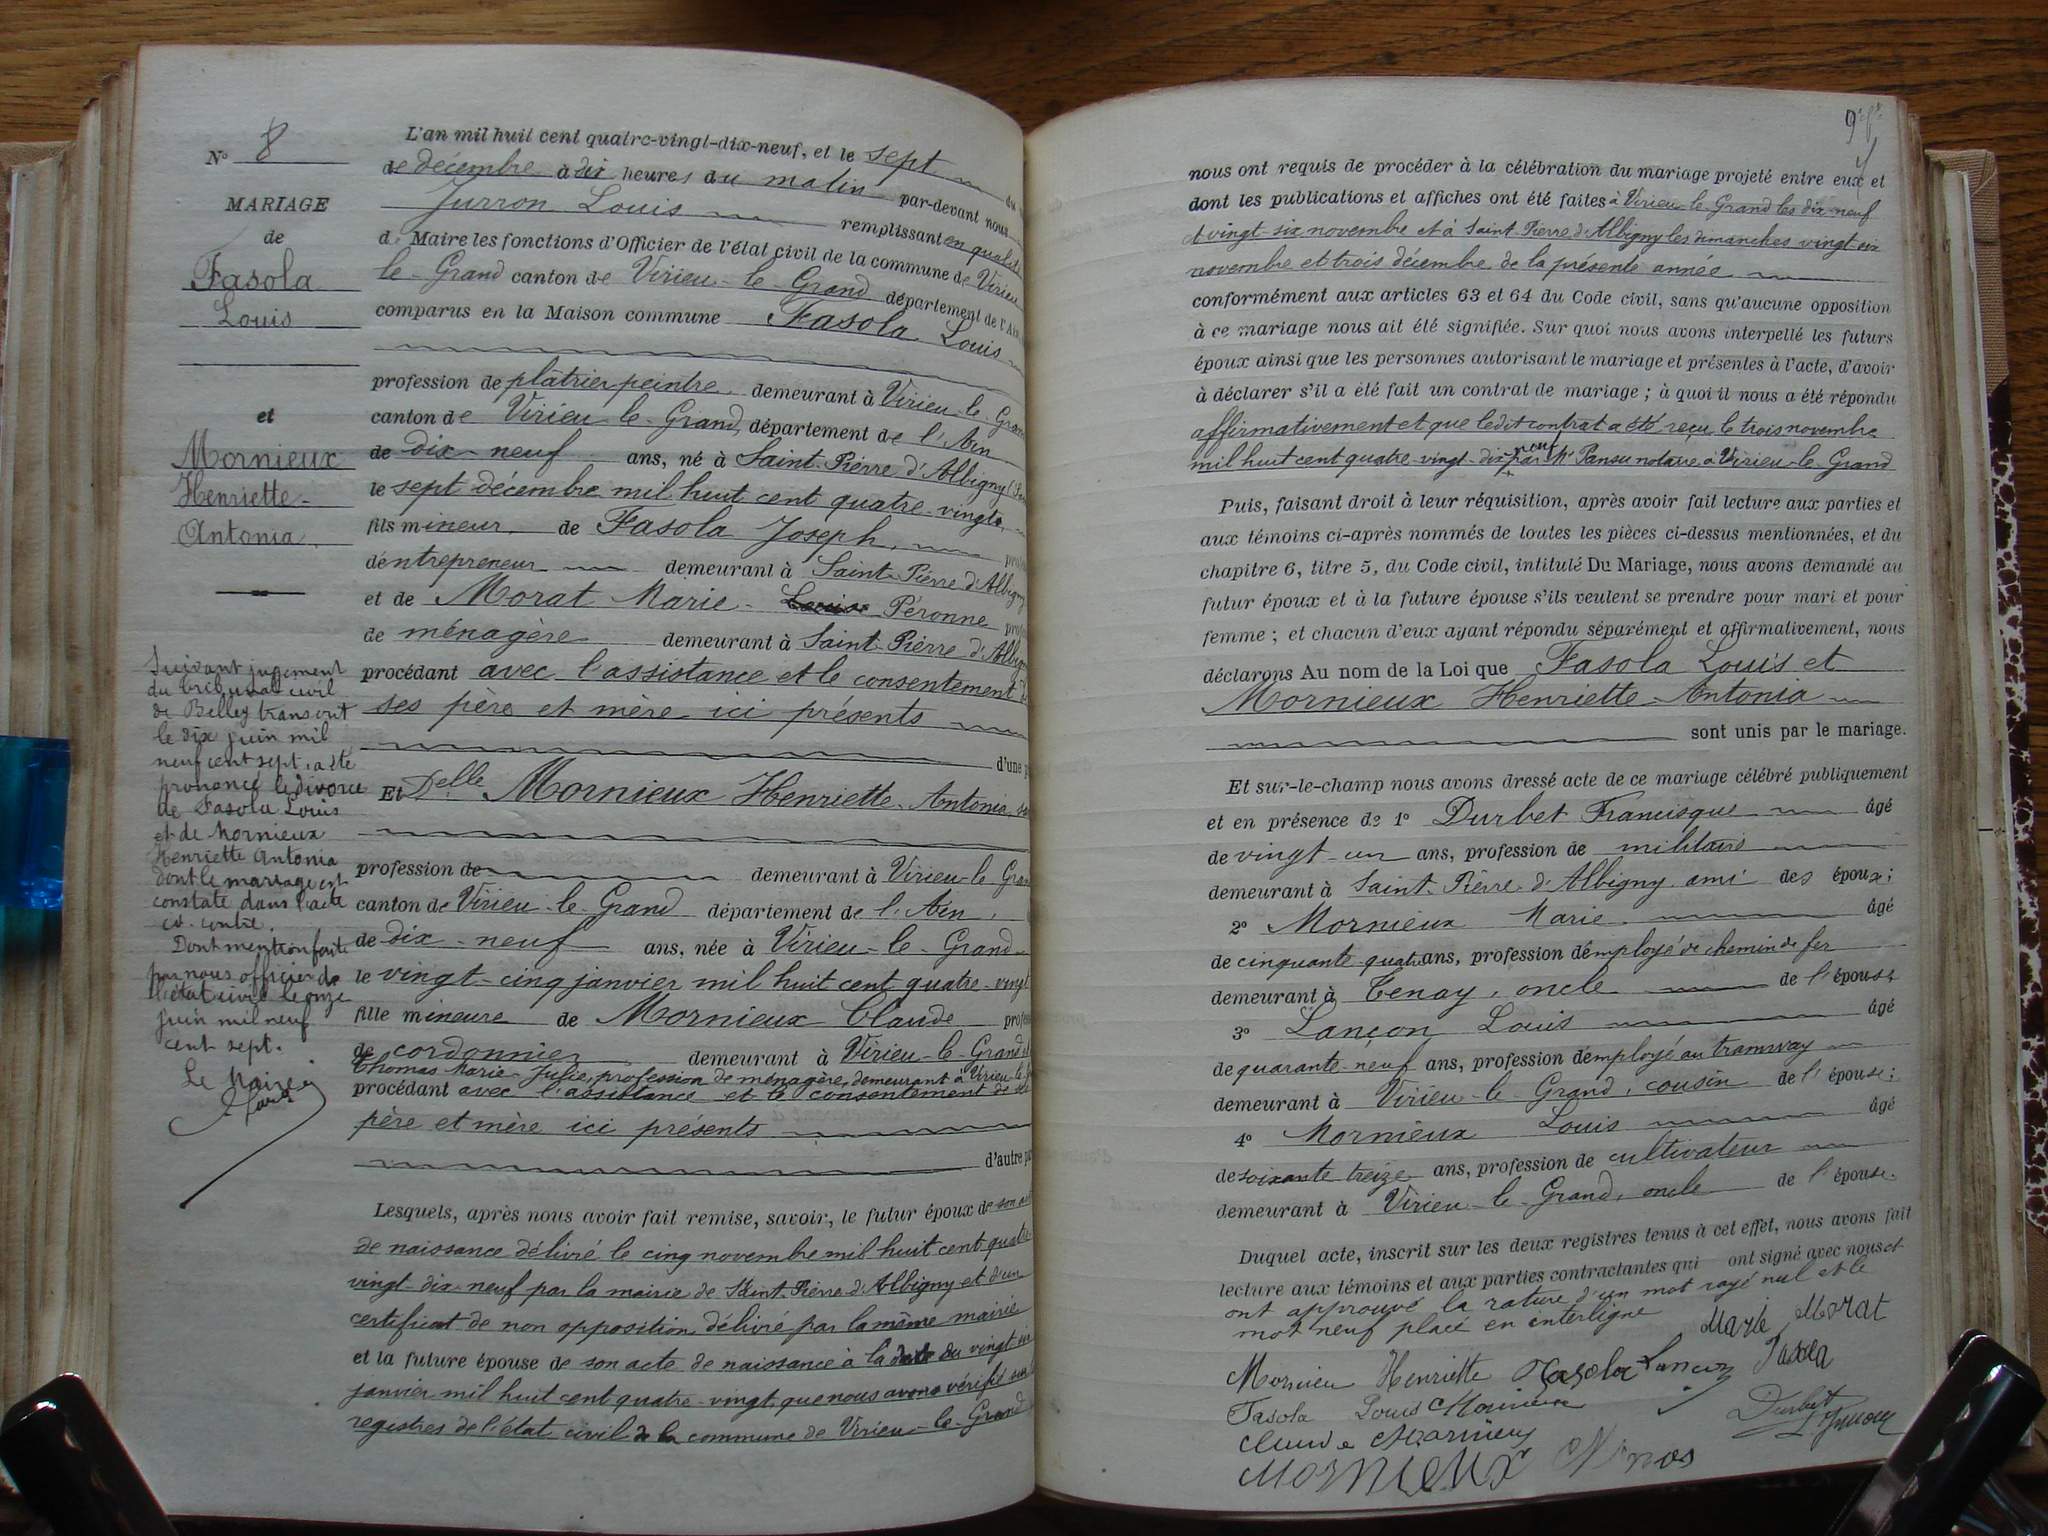 N° 8
MARIAGE
de
Fasola
Louis
et
Mornieux
Henriette-
Antonia.
Suivant jugement
du tribunal civil
de Belley transcrit
le dix juin mil
neuf cent sept, a été
prononcé le divorce
de Fasola Louis
et de Mornieux
Henriette Antonia
dont le mariage est
constaté dans l'acte
ci-contre.
Dont mention faite
par nous officier de
l'état civil le onze
juin mil neuf
cent sept.
Le Maire
L'an mil huit cent quatre-vingt-dix-neuf, et le sept du
de décembre à dix heures du matin par-devant nous
Jurron Louis remplissant en qualité
de Maire les fonctions d'Officier de l'état civil de la commune de Virieu
le-Grand canton de Virieu-le-Grand département de l'Ain
comparus en la Maison commune Fasola Louis
profession de plâtrier peintre demeurant à Virieu-le-Gran
canton de Virieu-le-Grand, département de l'Ain
de dix-neuf ans, né à Saint-Pierre d'Albigny
le sept décembre mil huit cent quatre-vingts,
fils mineur de Fasola Joseph,
d'entrepreneur demeurant à Saint-Pierre d'Albigny
et de Morat Marie-Louise Péronne
de ménagère demeurant à Saint-Pierre d'Albigny
procédant avec l'assistance et le consentement de
ses père et mère ici présents
d'une p
Et Delle Mornieux Henriette-Antonia, sa
profession de demeurant à Virieu-le-Gran
canton de Virieu-le-Grand département de l'Ain,
de dix-neuf ans, née à Virieu-le-Grand
le vingt-cinq janvier mil huit cent quatre-vingt
fille mineure de Mornieux Claude profes
de cordonnier demeurant à Virieu-le-Grand et
Thomas Marie-Julie, profession de ménagère, demeurant à Virieu-le-G
procédant avec l'assistance et le consentement de ses
père et mère ici présents
d'autre pa
Lesquels, après nous avoir fait remise, savoir, le futur époux de son acte
de naissance délivré le cinq novembre mil huit cent quatre-
vingt-dix-neuf par la mairie de Saint-Pierre d'Albigny et d'un
certificat de non opposition délivré par la même mairie
et la future épouse de son acte de naissance à la date du vingt-six
janvier mil huit cent quatre-vingt que nous avons vérifié sur
registres de l'état civil de la commune de Virieu-le-Grand
9e
nous ont requis de procéder à la célébration du mariage projeté entre eux et
dont les publications et affiches ont été faites à Virieu-le-Grand les dix-neuf
et vingt-six novembre et à Saint-Pierre d'Albigny les dimanches vingt-six
novembre et trois décembre de la présente année
conformément aux articles 63 et 64 du Code civil, sans qu'aucune opposition
à ce mariage nous ait été signifiée. Sur quoi nous avons interpellé les futurs
époux ainsi que les personnes autorisant le mariage et présentes à l'acte, d'avoir
à déclarer s'il a été fait un contrat de mariage ; à quoi il nous a été répondu
affirmativement et que ledit contrat a été reçu le trois novembre
mil huit cent quatre-vingt-dix neuf par Me Pansu notaire à Virieu-le-Grand
Puis, faisant droit à leur réquisition, après avoir fait lecture aux parties et
aux témoins ci-après nommés de toutes les pièces ci-dessus mentionnées, et du
chapitre 6, titre 5, du Code civil, intitulé Du Mariage, nous avons demandé au
futur époux et à la future épouse s'ils veulent se prendre pour mari et pour
femme ; et chacun d'eux ayant répondu séparément et affirmativement, nous
déclarons Au nom de la Loi que Fasola Louis et
Mornieux Henriette-Antonia
sont unis par le mariage.
Et sur-le-champ nous avons dressé acte de ce mariage célébré publiquement
et en présence de 1° Durbet Francisque âgé
de vingt-un ans, profession de militaire
demeurant à Saint-Pierre d'Albigny ami des époux ;
2° Mornieux Marie âgé
de cinquante-quatre ans, profession d'employé de chemin de fer
demeurant à Tenay, oncle de l'épouse
3° Lançon Louis âgé
de quarante-neuf ans, profession d'employé au tramway
demeurant à Virieu-le-Grand, cousin de l'épouse ;
4° Mornieux Louis âgé
de soixante treize ans, profession de cultivateur
demeurant à Virieu-le-Grand, oncle de l'épouse.
Duquel acte, inscrit sur les deux registres tenus à cet effet, nous avons fait
lecture aux témoins et aux parties contractantes qui ont signé avec nous et
ont approuvé la rature d'un mot rayé nul et le
mot neuf placé en interligne Marie Morat
Mornieu Henriette Fasola Lançon Fasola
Fasola Louis Mornieux Durbet
Claude Mornieux
Mornieux